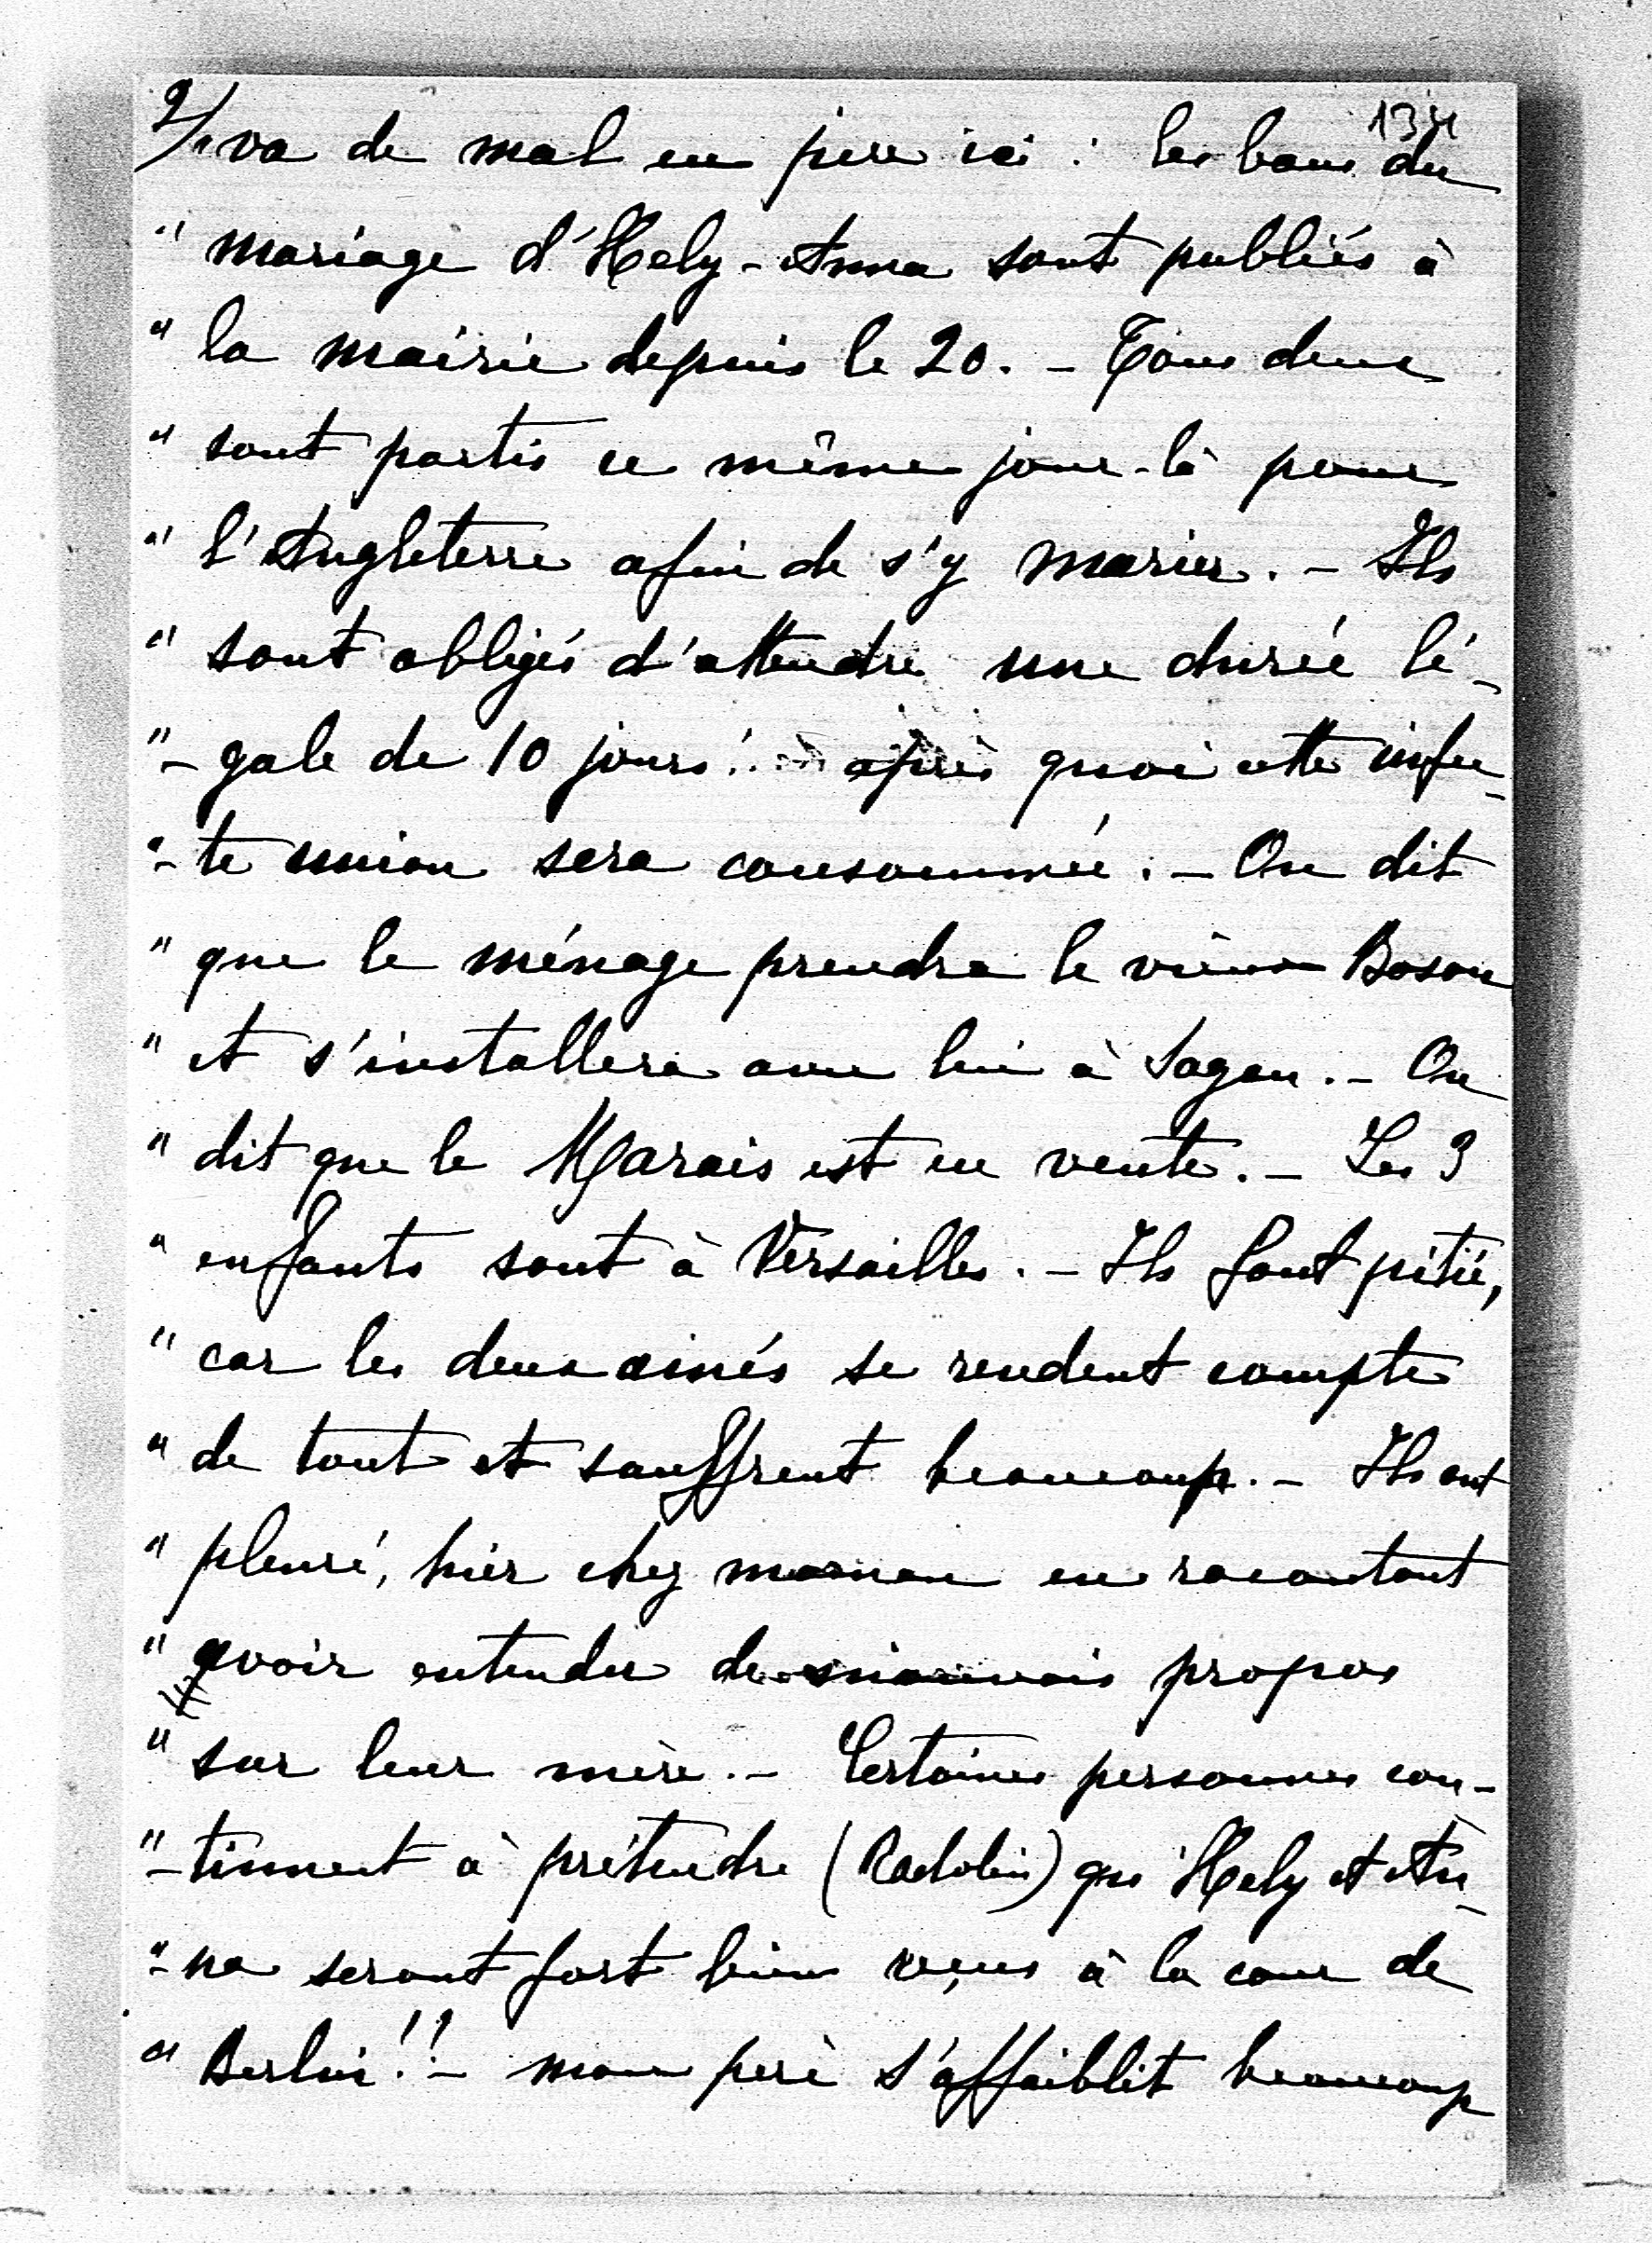 2/ 134
" va de mal en pire ici : les bans du
" mariage d'Hely-Anna sont publiés à
" la mairie depuis le 20. - Tous deux
" sont partis ce même jour-là pour
" l'Angleterre afin de s'y marier. - Ils
" sont obligés d'attendre une durée lé-
"- gale de 10 jours : après quoi cette infec-
"- te union sera consommée. - On dit
" que le ménage prendra le vieux Boson
" et s'installera avec lui à Sagan. - On
" dit que le Marais est en vente. - Les 3
" enfants sont à Versailles. - Ils font pitié,
" car les deux ainés se rendent compte
" de tout et souffrent beaucoup. - Ils ont
" pleuré, hier chez maman en racontant
" avoir entendu de mauvais propos
" sur leur mère. - Certaines personnes con-
"- tinuent à prétendre (Radolin) que Hely et An-
"- na seront fort bien reçus à la cour de
" Berlin!! - mon père s'affaiblit beaucoup